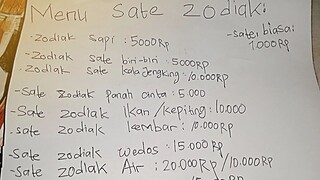 Menu Sate Zodiak:
-Zodiak sapi : 5000Rp
-sate biasa:
1000Rp
-Zodiak sate biri-biri : 5000Rp
-Zodiak sate kalajengking : 10.000Rp
-Sate Zodiak panah cinta : 5.000
-Sate Zodiak Ikan/kepiting : 10.000
-sate Zodiak kembar : 10.000Rp
-Sate Zodiak wedos : 15.000Rp
-sate Zodiak Air : 20.000Rp/10.000Rp